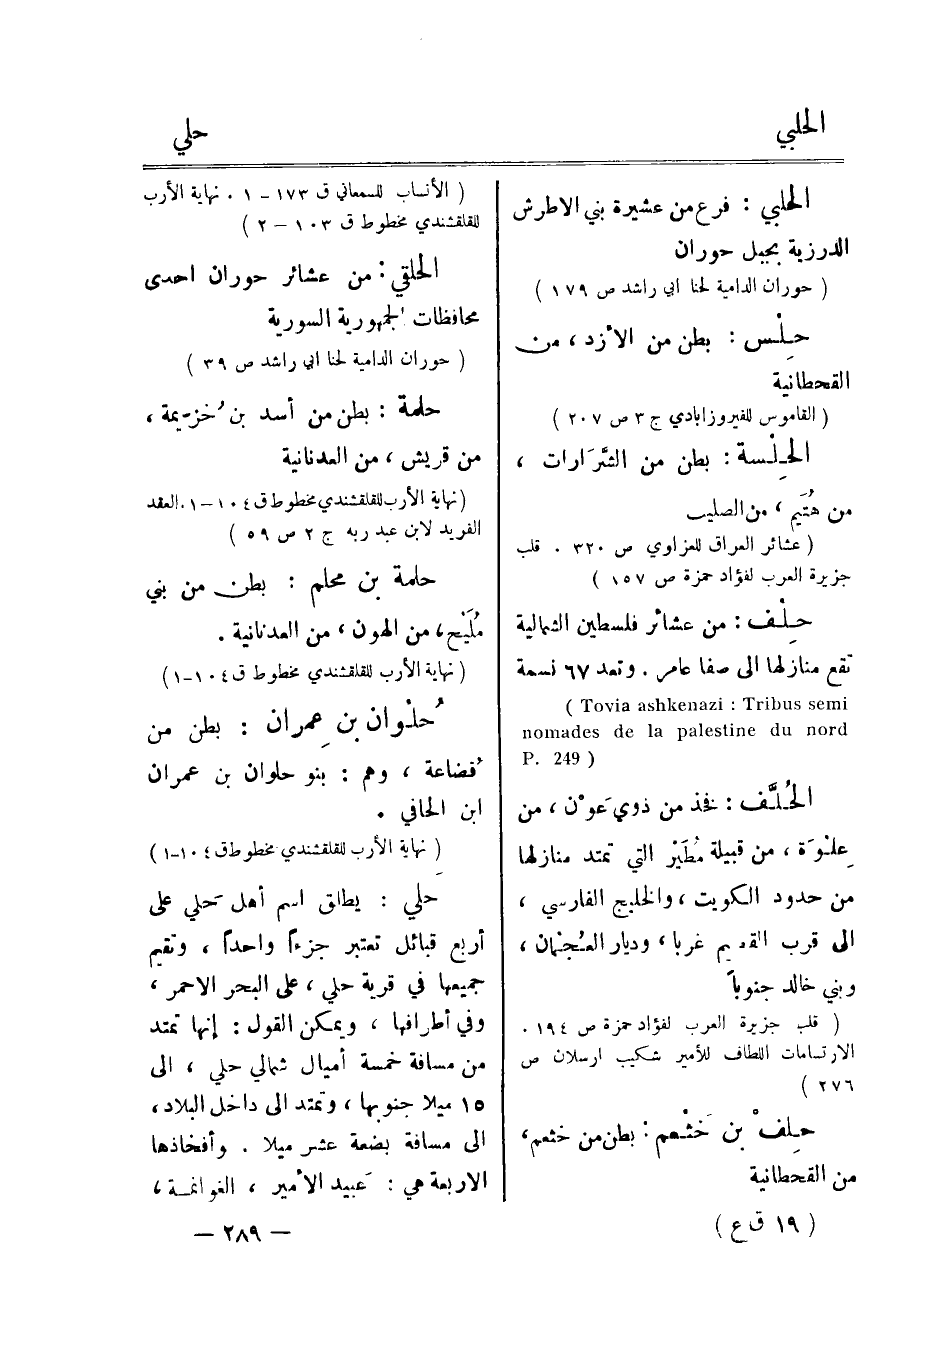 الحلبي
حلي
الحلبي : فرع من عشيرة بني الاطرش
الدرزية بجبل حوران
( حوران الدامية لحنا ابي راشد ص ١٧٩ )
حِلْس : بطن من الأزد ، من
القحطانية
( القاموس للفيروزابادي ج ٣ ص ٢٠٧ )
الحِلْسة : بطن من الشَّرَارات ،
من هُتَيم ، من الصليب
( عشائر العراق للعزاوي ص ٣٢٠ . قلب
جزيرة العرب لفؤاد حمزة ص ١٥٧ )
حِلْف : من عشائر فلسطين الشمالية
تقع منازلها الى صفا عامر . وتعد ٦٧ نسمة
( Tovia ashkenazi : Tribus semi
nomades de la palestine du nord
P. 249 )
الحُلَّف : فخذ من ذوي عَوْن ، من
عِلْوَة ، من قبيلة مُطَيْر التي تمتد منازلها
من حدود الكويت ، والخليج الفارسي ،
الى قرب القصيم غربا ، وديار العُجْمان ،
وبني خالد جنوباً
( قلب جزيرة العرب لفؤاد حمزة ص ١٩٤ .
الارتسامات اللطاف للأمير شكيب ارسلان ص
٢٧٦ )
حِلفْ بن خَثْعم : بطن من خثعم ،
من القحطانية
( ١٩ ق ع )
( الأنساب للسمعاني ق ١٧٣ – ١ . نهاية الأرب
للقلقشندي مخطوط ق ١٠٣ – ٢ )
الحلقي : من عشائر حوران احدى
محافظات الجمهورية السورية
( حوران الدامية لحنا ابي راشد ص ٣٩ )
حلمة : بطن من أسد بن خُزيمة ،
من قريش ، من العدنانية
( نهاية الأرب للقلقشندي مخطوط ق ١٠٤ – ١ . العقد
الفريد لابن عبد ربه ج ٢ ص ٥٩ )
حلمة بن محلم : بطن من بني
مُلَيْح ، من الهون ، من العدنانية .
( نهاية الأرب للقلقشندي مخطوط ق ١٠٤–١ )
حُلْوان بن عِمران : بطن من
قُضاعة ، وهم : بنو حلوان بن عمران
ابن الحافي .
( نهاية الأرب للقلقشندي مخطوط ق ١٠٤–١ )
حلي : يطلق اسم أهل حَلي على
أربع قبائل تعتبر جزءاً واحداً ، وتقيم
جميعها في قرية حلي ، على البحر الاحمر ،
وفي أطرافها ، ويمكن القول : إنها تمتد
من مسافة خمسة أميال شمالي حلي ، الى
١٥ ميلا جنوبها ، وتمتد الى داخل البلاد ،
الى مسافة بضعة عشر ميلا . وأفخاذها
الاربعة هي : عَبيد الأمير ، الغوانمة ،
— ٢٨٩ —